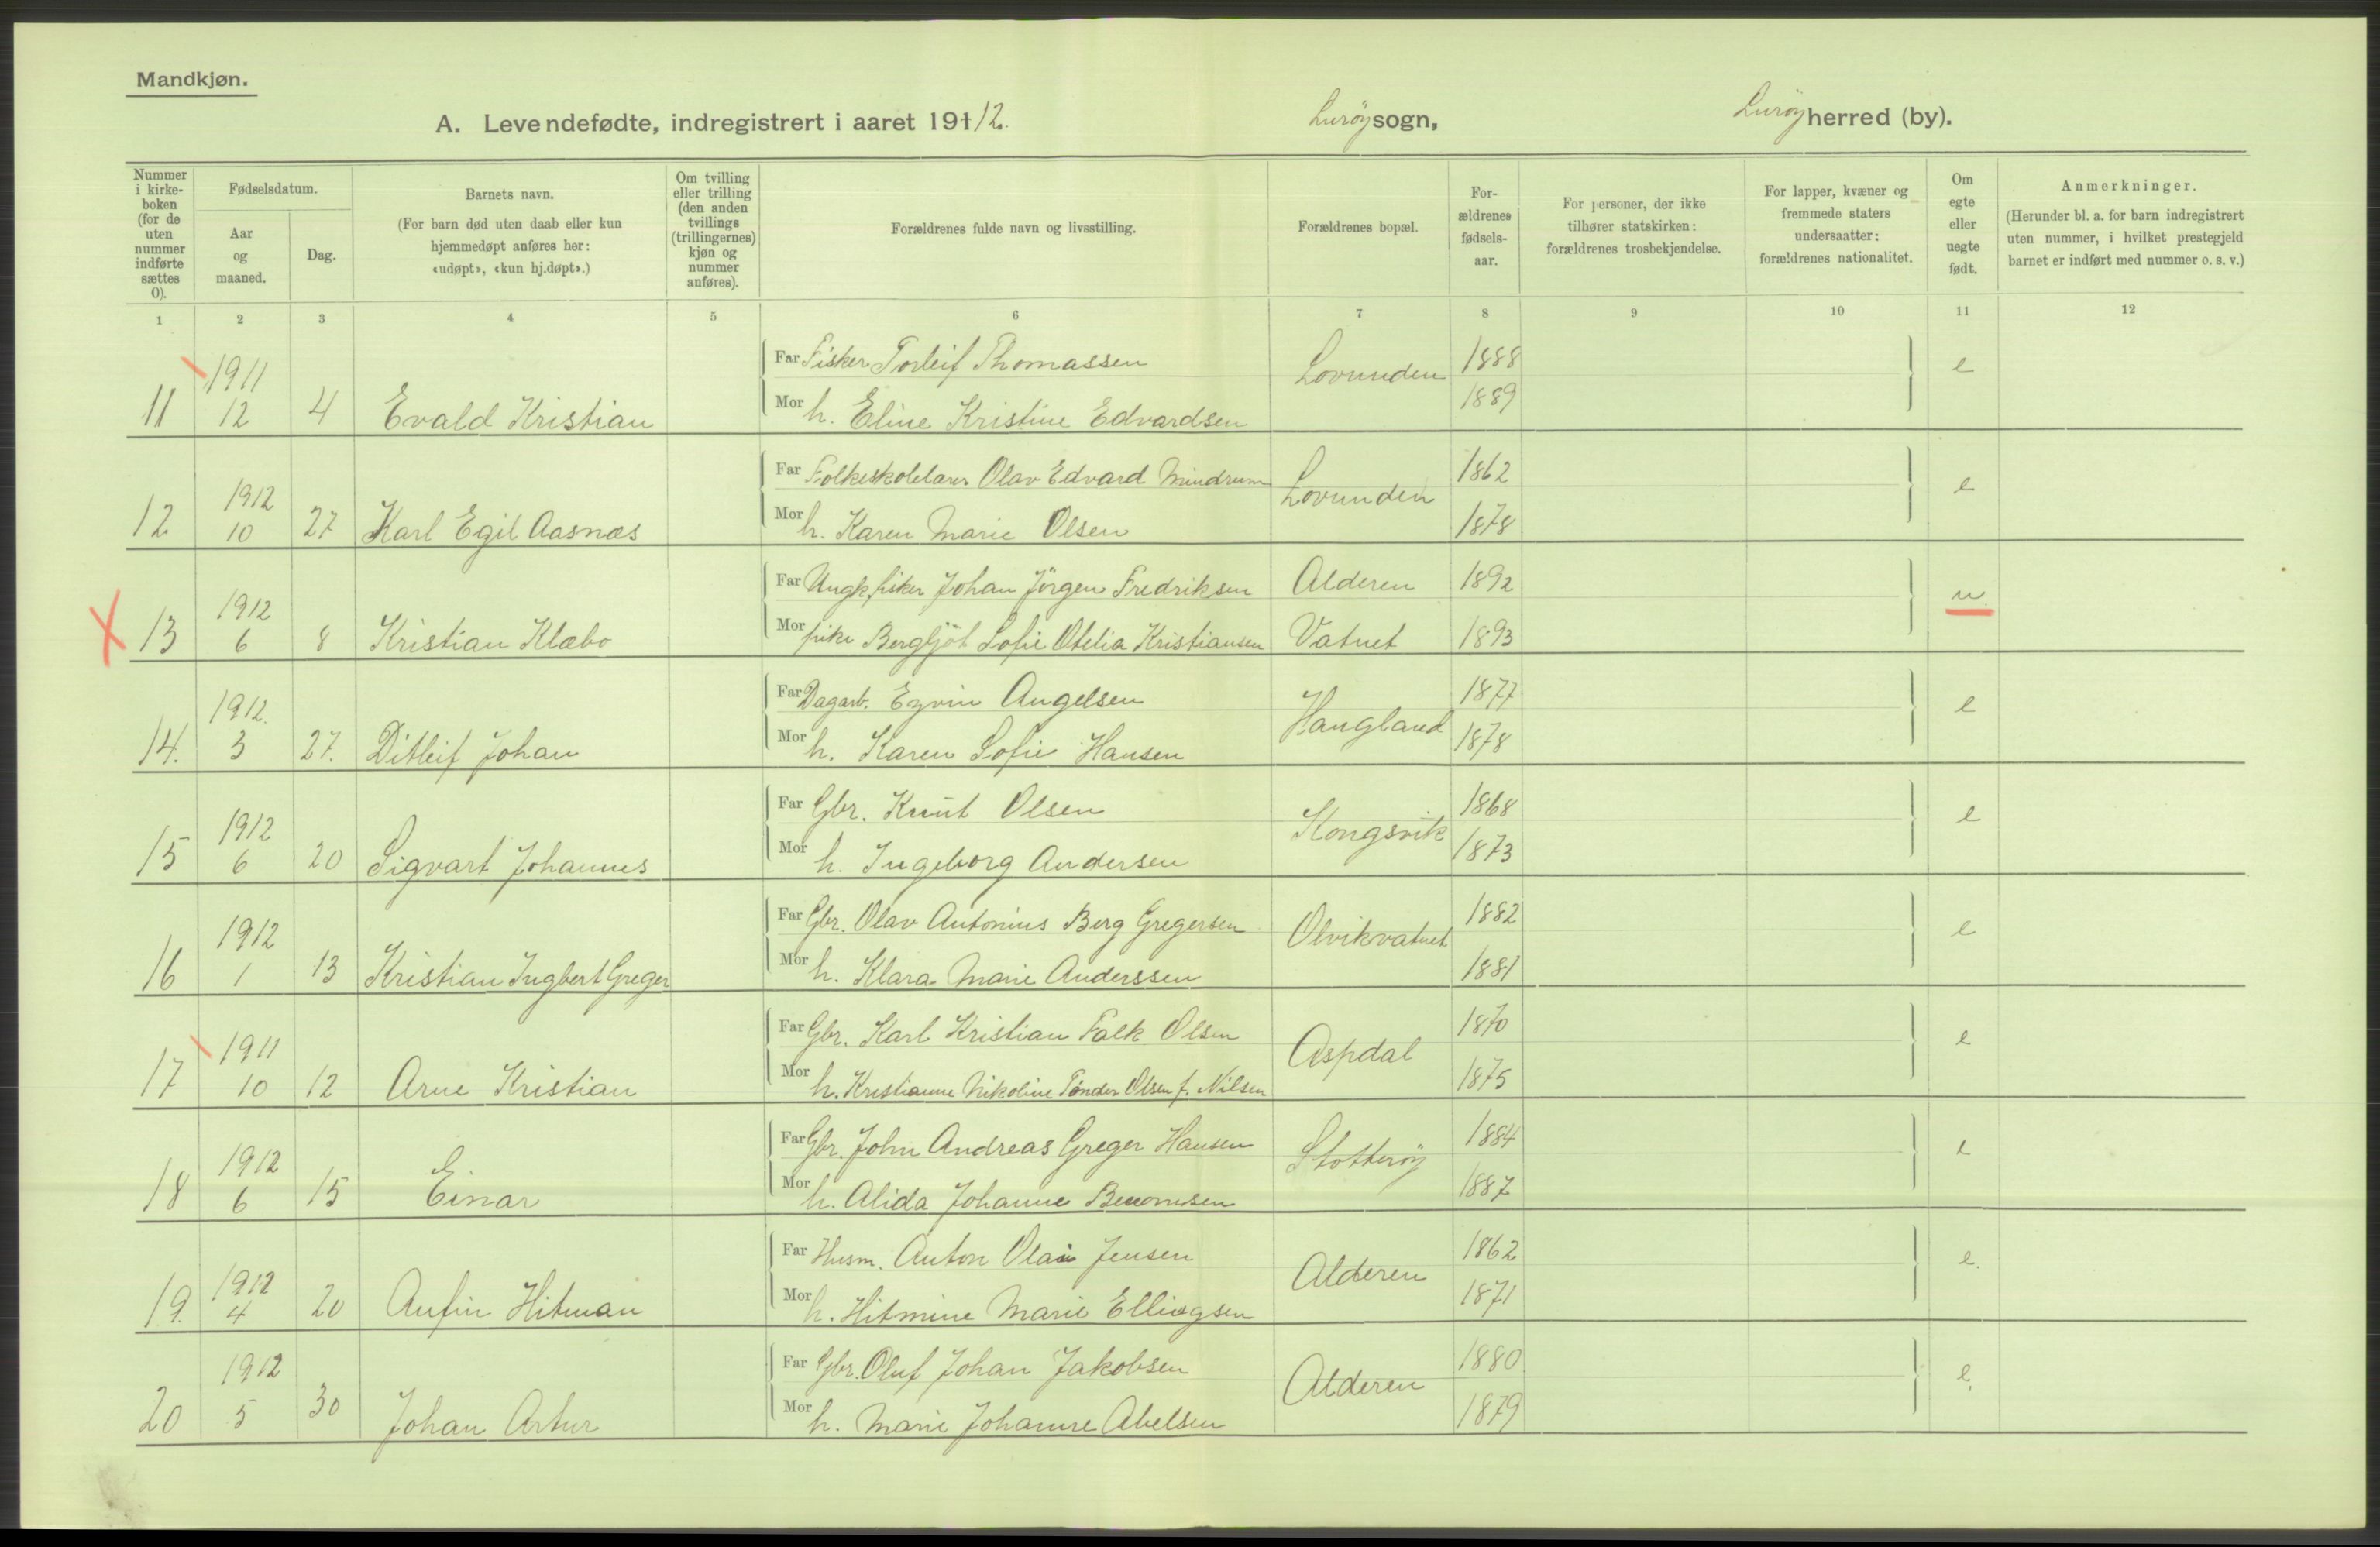 Mandkjøn.
A. Levendefødte, indregistrert i aaret 1912. Lurøy sogn, Lurøy herred (by).
Nummer i kirkeboken (for de uten nummer indførte sættes 0).
Fødselsdatum.
Aar og maaned.
Dag.
Barnets navn.
(For barn død uten daab eller kun hjemmedøpt anføres her: «udøpt», «kun hj.døpt».)
Om tvilling eller trilling (den anden tvillings (trillingernes) kjøn og nummer anføres).
Forældrenes fulde navn og livsstilling.
Forældrenes bopæl.
Forældrenes fødselsaar.
For personer, der ikke tilhører statskirken: forældrenes trosbekjendelse.
For lapper, kvæner og fremmede staters undersaatter: forældrenes nationalitet.
Om egte eller uegte født.
Anmerkninger.
(Herunder bl. a. for barn indregistrert uten nummer, i hvilket prestegjeld barnet er indført med nummer o. s. v.)
1 2 3 4 5 6 7 8 9 10 11 12
11 1911 12 4 Evald Kristian Far Fisker Torleif Thomassen Lovunden 1888 e
Mor h. Eline Kristine Edvardsen 1889
12 1912 10 27 Karl Egil Aasnæs Far Folkeskolelærer Olav Edvard Mindrum Lovunden 1862 e
Mor h. Karen Marie Olsen 1878
X 13 1912 6 8 Kristian Klæbo Far Ungk. fisker Johan Jörgen Fredriksen Alderen 1892 u.
Mor pike Bergljót Sofie Otelia Kristiansen Vatnet 1893
14. 1912. 3 27. Ditleif Johan Far Dagarb. Ezvin Angelsen Haugland 1877 e
Mor h. Karen Sofie Hansen 1878
15 1912 6 20 Sigvart Johannes Far Gbr. Knut Olsen Kongsvik 1868 e
Mor h. Ingeborg Andersen 1873
16 1912 1 13 Kristian Ingbert Greger Far Gbr. Olav Antonius Berg Gregersen Olvikvatnet 1882 e
Mor h. Klara Marie Anderssen 1881
17 1911 10 12 Arne Kristian Far Gbr. Karl Kristian Falk Olsen Aspdal 1870 e
Mor h. Kristianne Nikoline Tönder Olsen f. Nilsen 1875
18 1912 6 15 Einar Far Gbr. John Andreas Greger Hansen Slotterøy 1884 e
Mor h. Alida Johanne 1887
19. 1912 4 20 Anfin Hitman Far Husm. Anton Olai Jensen Alderen 1862 e.
Mor h. Hitmine Marie Ellingsen 1871
20 1912 5 30 Johan Artur Far Gbr. Oluf Johan Jakobsen Alderen 1880 e.
Mor h. Marie Johanne Abelsen 1879